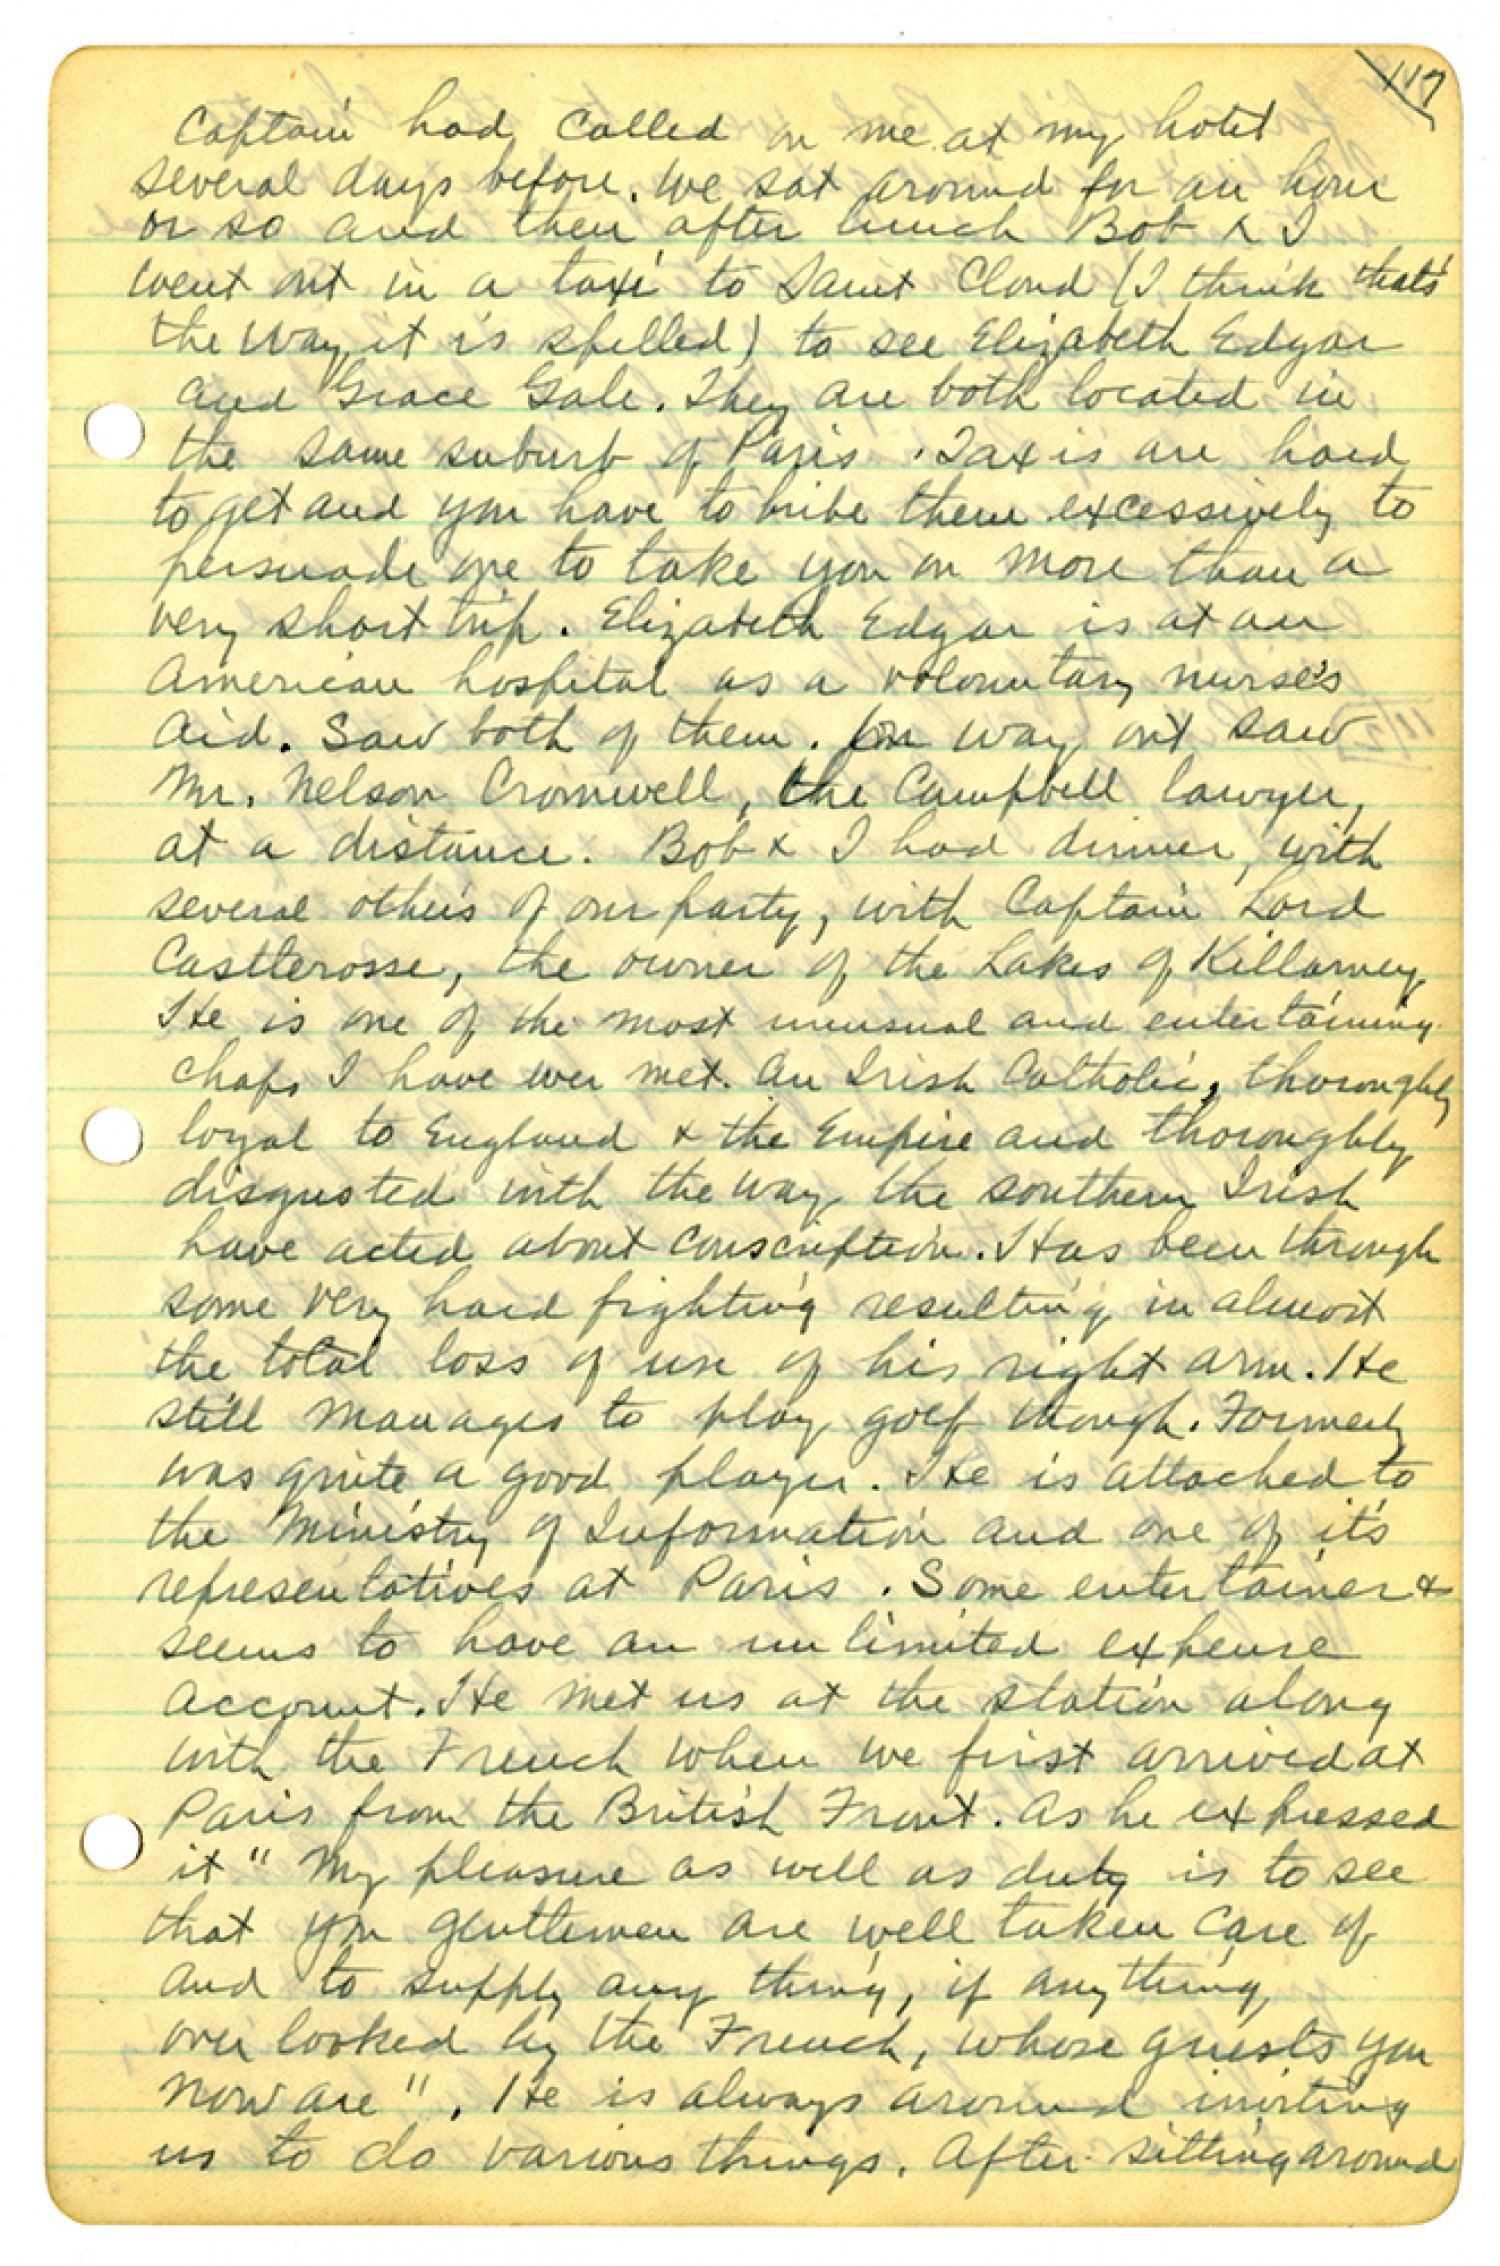 117
Captain had called on me at my hotel
several days before. We sat around for an hour
or so and then after lunch Bob & I
went out in a taxi to Saint Cloud (I think that's
the way it is spelled) to see Elizabeth Edgar
and Grace Gale. They are both located in
the same suburb of Paris. Taxis are hard
to get and you have to bribe them excessively to
persuade one to take you on more than a
very short trip. Elizabeth Edgar is at an
American hospital as a voluntary nurse's
aid. Saw both of them. On way out saw
Mr. Nelson Cromwell, the Campbell lawyer,
at a distance. Bob & I had dinner, with
several others of our party, with Captain Lord
Castlerosse, the owner of the Lakes of Killarney
He is one of the most unusual and entertaining
chaps I have ever met. An Irish Catholic, thoroughly
loyal to England & the Empire and thoroughly
disgusted with the way the southern Irish
have acted about conscription. Has been through
some very hard fighting resulting in almost
the total loss of use of his right arm. He
still manages to play golf though. Formerly
was quite a good player. He is attached to
the Ministry of Information and one of it's
representatives at Paris. Some entertainer &
seems to have an unlimited expense
account. He met us at the station along
with the French when we first arrived at
Paris from the British Front. As he expressed
it "My pleasure as well as duty is to see
that you gentlemen are well taken care of
and to supply any thing, if anything,
over looked by the French, whose guests you
now are". He is always around inviting
us to do various things. After sitting around